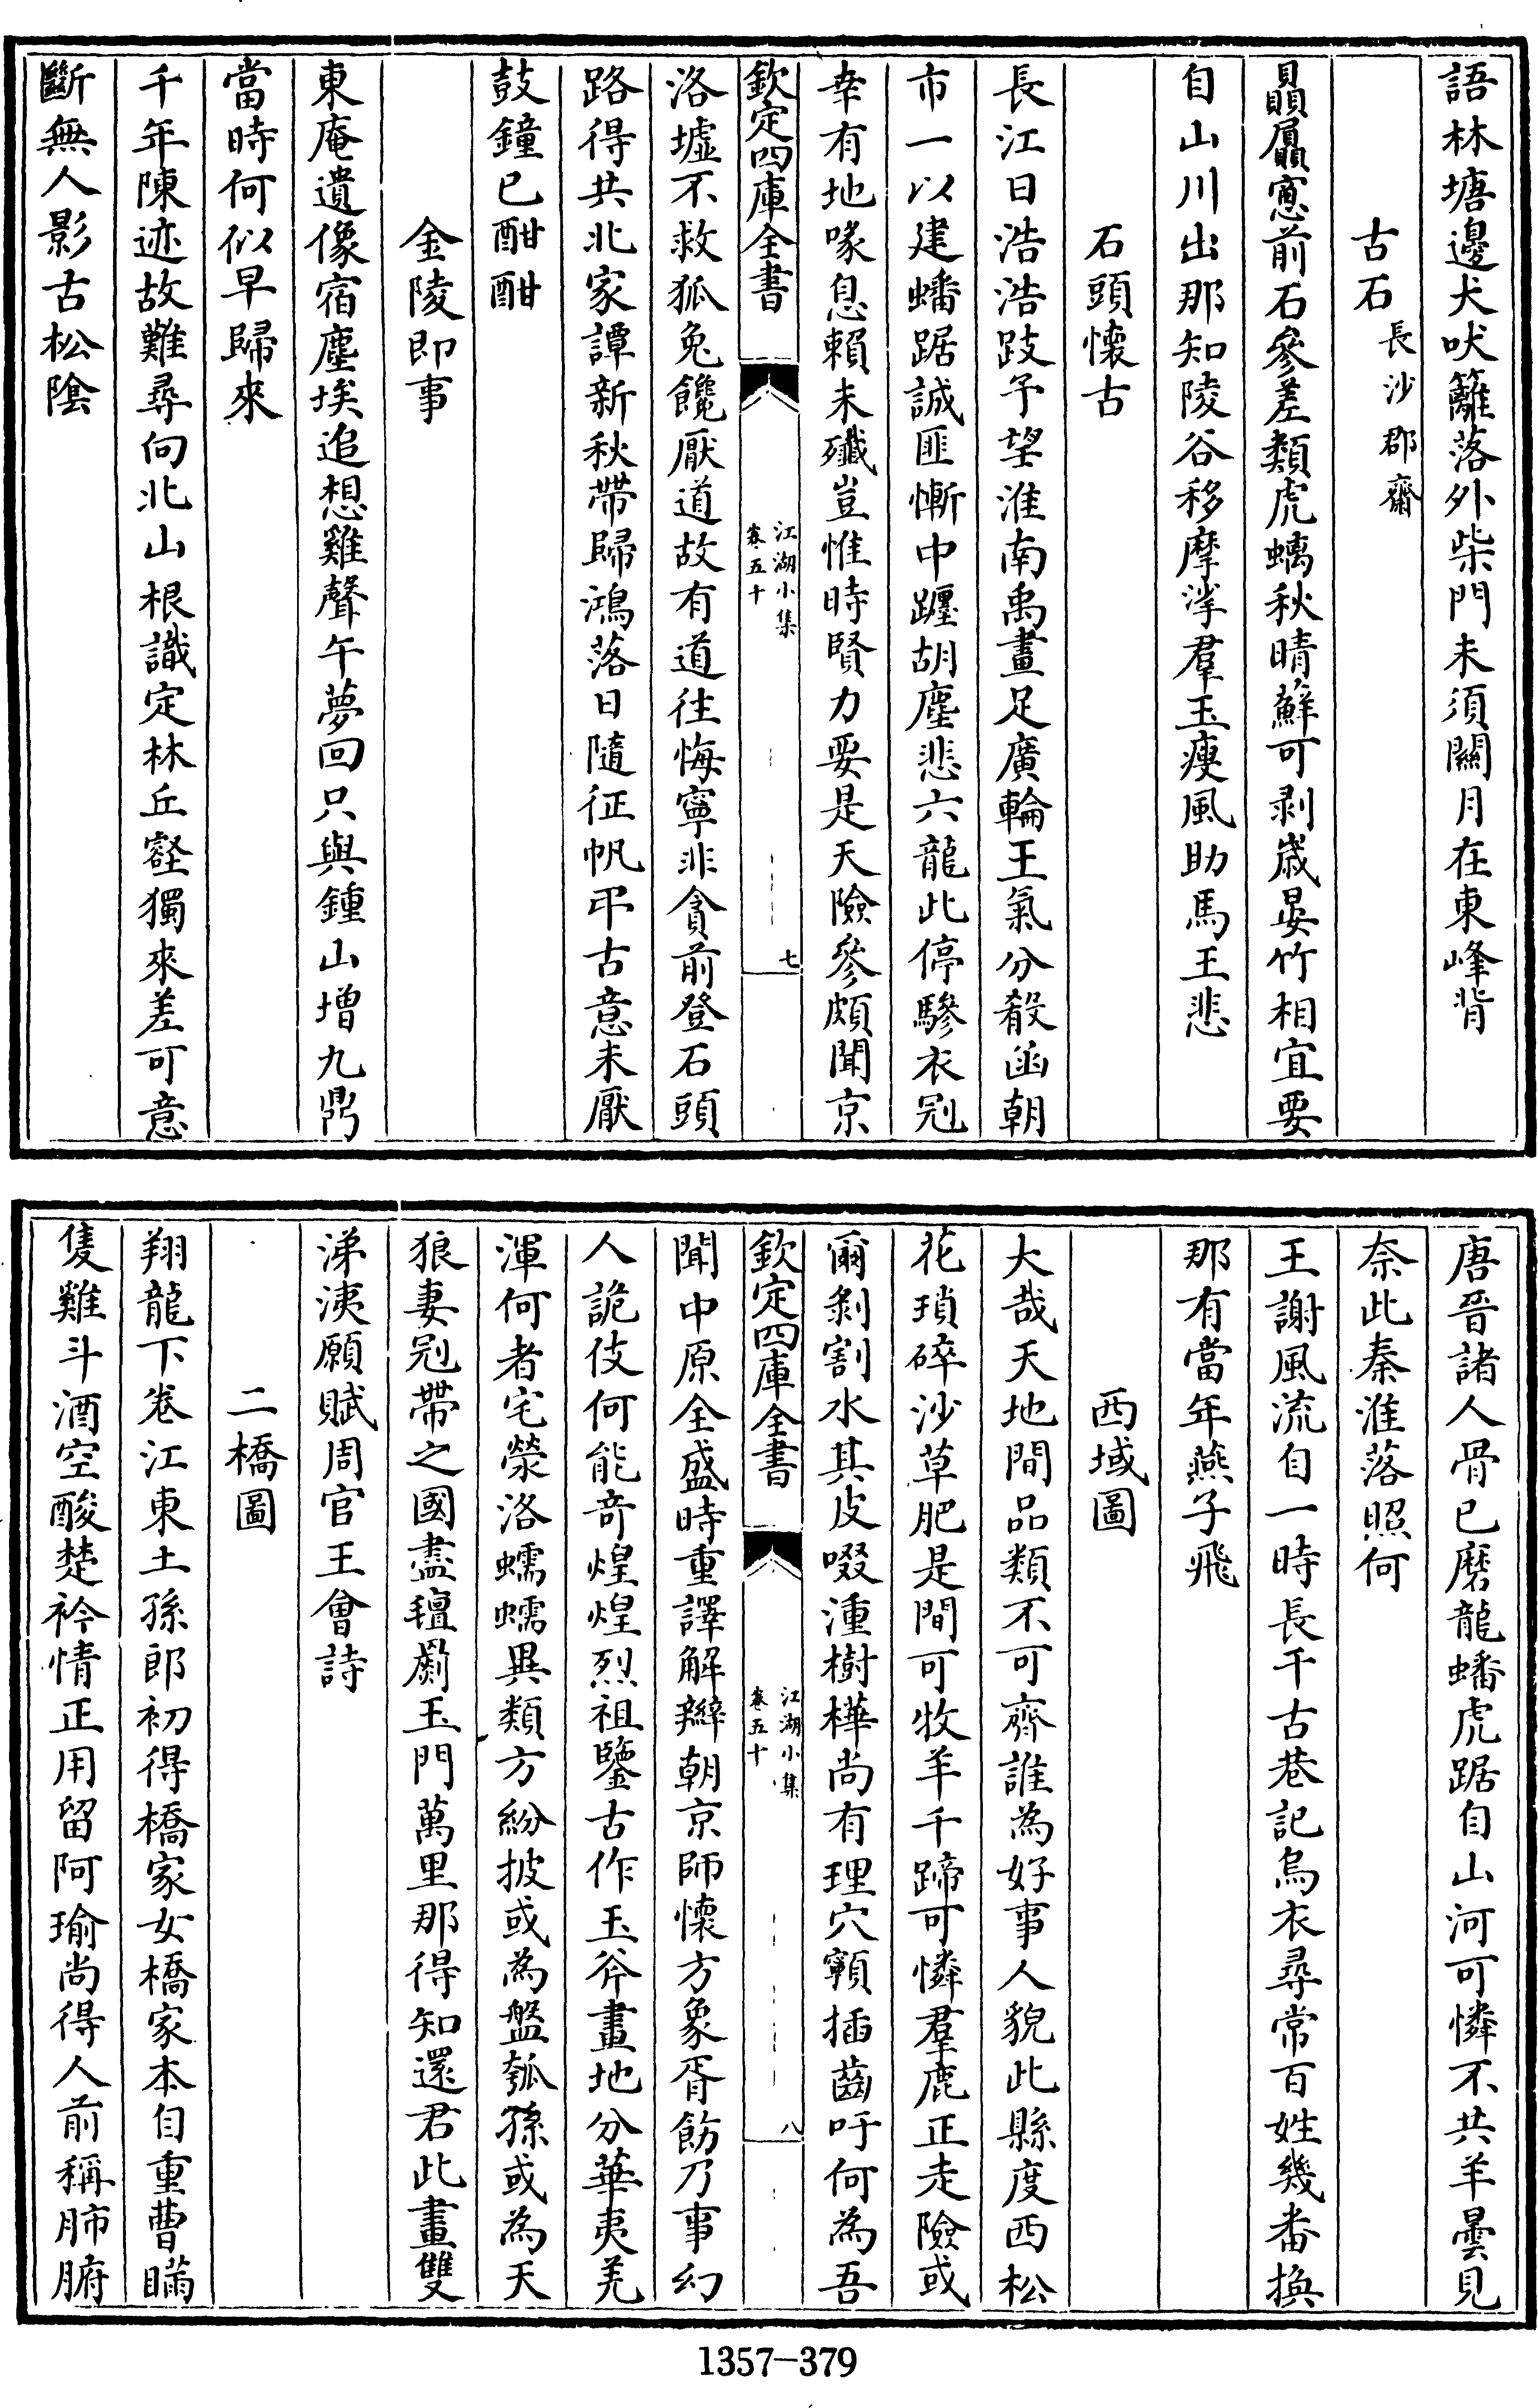 語林塘邊犬吠籬落外柴門未須關月在東峰背
古石長沙郡齋
贔屭窻前石參差類虎螭秋晴蘚可剥歳晏竹相宜要
自山川出那知陵谷移摩挲羣玉瘦風助馬王悲
石頭懷古
長江日浩浩跂予望淮南禹畫足廣輪王氣分殽函朝
市一以建蟠踞誠匪慚中躔胡塵悲六龍此停驂衣冠
幸有地喙息賴未殲豈惟時賢力要是天險參頗聞京
欽定四庫全書
江湖小集
卷五十
七
洛墟不救狐兔饞厭道故有道往悔寧非貪前登石頭
路得共北家譚新秋帶歸鴻落日隨征帆弔古意未厭
鼓鐘已酣酣
金陵即事
東庵遺像宿塵埃追想雞聲午夢回只與鍾山增九鼎
當時何似早歸來
千年陳迹故難尋向北山根識定林丘壑獨來差可意
斷無人影古松陰
唐晉諸人骨已磨龍蟠虎踞自山河可憐不共羊曇見
奈此秦淮落照何
王謝風流自一時長干古巷記烏衣尋常百姓幾番換
那有當年燕子飛
西域圖
大哉天地間品類不可齊誰為好事人貌此縣度西松
花瑣碎沙草肥是間可牧羊千蹄可憐羣鹿正走險或
爾剝割水其皮啜湩樹樺尚有理穴顙插齒吁何為吾
欽定四庫全書
江湖小集
卷五十
八
聞中原全盛時重譯解辮朝京師懷方象胥飭乃事幻
人詭伎何能竒煌煌烈祖鑒古作玉斧畫地分華夷羌
渾何者宅滎洛蠕蠕異類方紛披或為盤瓠孫或為天
狼妻冠帶之國盡氊罽玉門萬里那得知還君此畫雙
涕洟願賦周官王會詩
二橋圖
翔龍下卷江東土孫郎初得橋家女橋家本自重曹瞞
隻雞斗酒空酸楚衿情正用留阿瑜尚得人前稱肺腑
1357-379